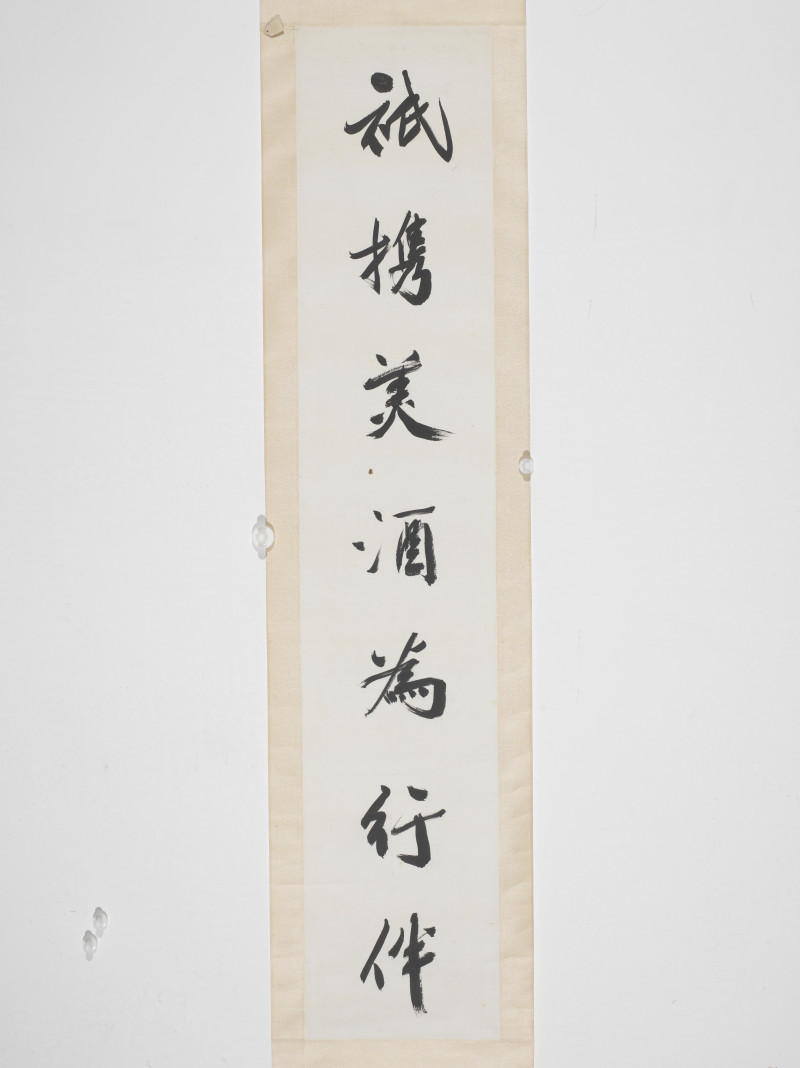 祇携美酒為行伴